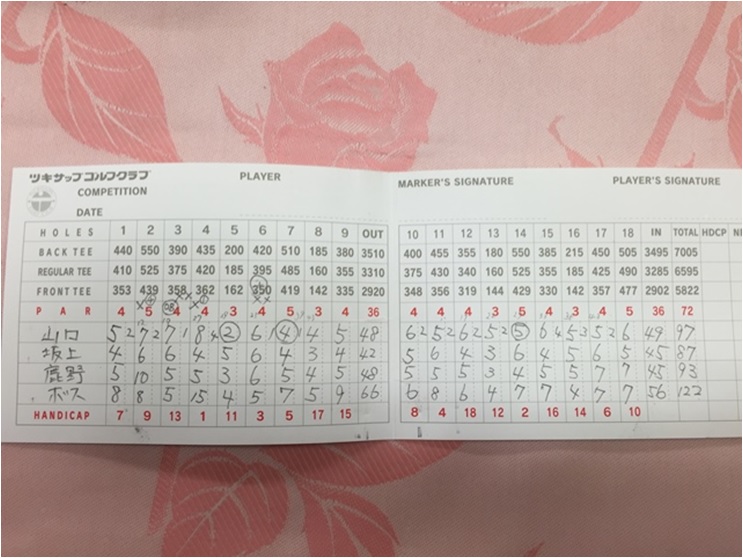 ツキサップゴルフクラブ PLAYER MARKER'S SIGNATURE PLAYER'S SIGNATURE
COMPETITION
DATE
HOLES 1 2 3 4 5 6 7 8 9 OUT 10 11 12 13 14 15 16 17 18 IN TOTAL HDCP
BACK TEE 440 550 390 435 200 420 510 185 380 3510 400 455 355 180 550 385 215 450 505 3495 7005
REGULAR TEE 410 525 375 420 185 395 485 160 355 3310 375 430 340 160 525 355 185 425 490 3285 6595
FRONT TEE 353 439 358 362 162 350 419 142 335 2920 348 356 319 144 429 330 142 357 477 2902 5822
PAR 4 5 4 4 3 4 5 3 4 36 4 4 4 3 5 4 3 4 5 36 72
山口 5 2 7 2 7 1 8 4 2 6 1 4 1 4 5 48 6 2 5 2 6 2 5 2 5 6 4 5 3 5 2 6 49 97
坂上 4 6 6 4 5 6 4 3 4 42 5 6 4 3 6 4 5 6 5 45 87
鹿野 5 10 5 5 3 6 5 4 5 48 5 5 5 3 4 5 5 7 7 45 93
ボス 8 8 5 15 4 5 7 5 9 66 6 8 6 4 7 7 4 7 7 56 122
HANDICAP 7 9 13 1 11 3 5 17 15 8 4 18 12 2 16 14 6 10